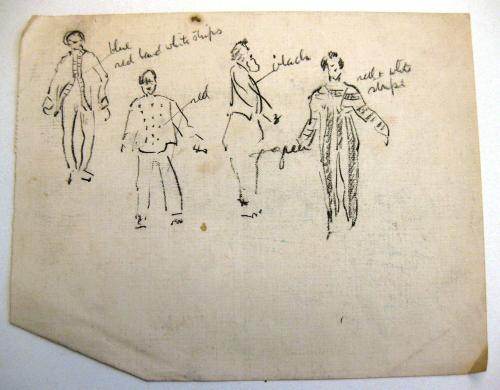 blue
red band white strips
red
black
green
red + white
stripe